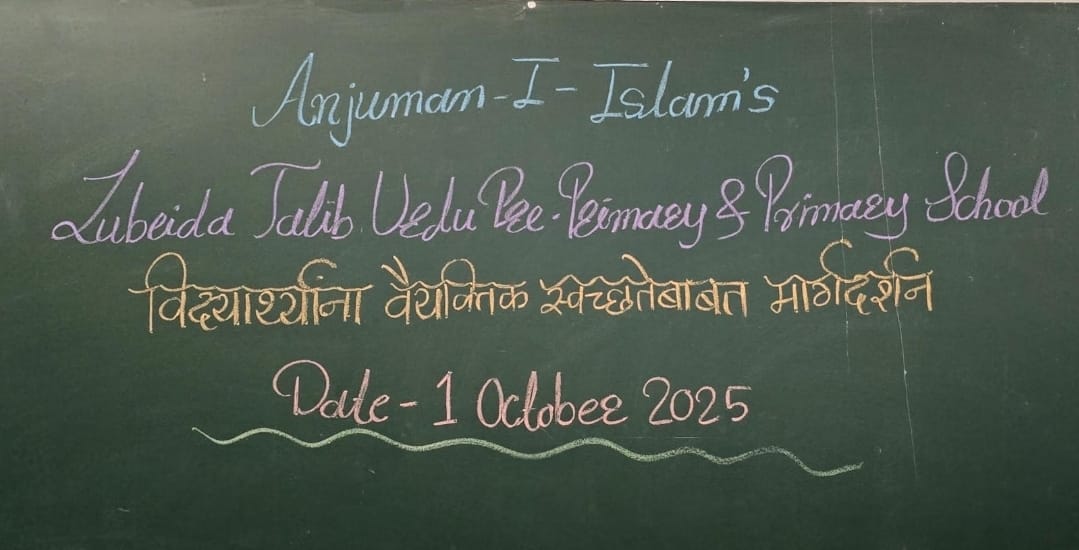 Anjuman-I-Islam's
Zubeida Talib Urdu Pre-Primary & Primary School
विद्यार्थ्यांना वैयक्तिक स्वच्छतेबाबत मार्गदर्शन
Date - 1 October 2025